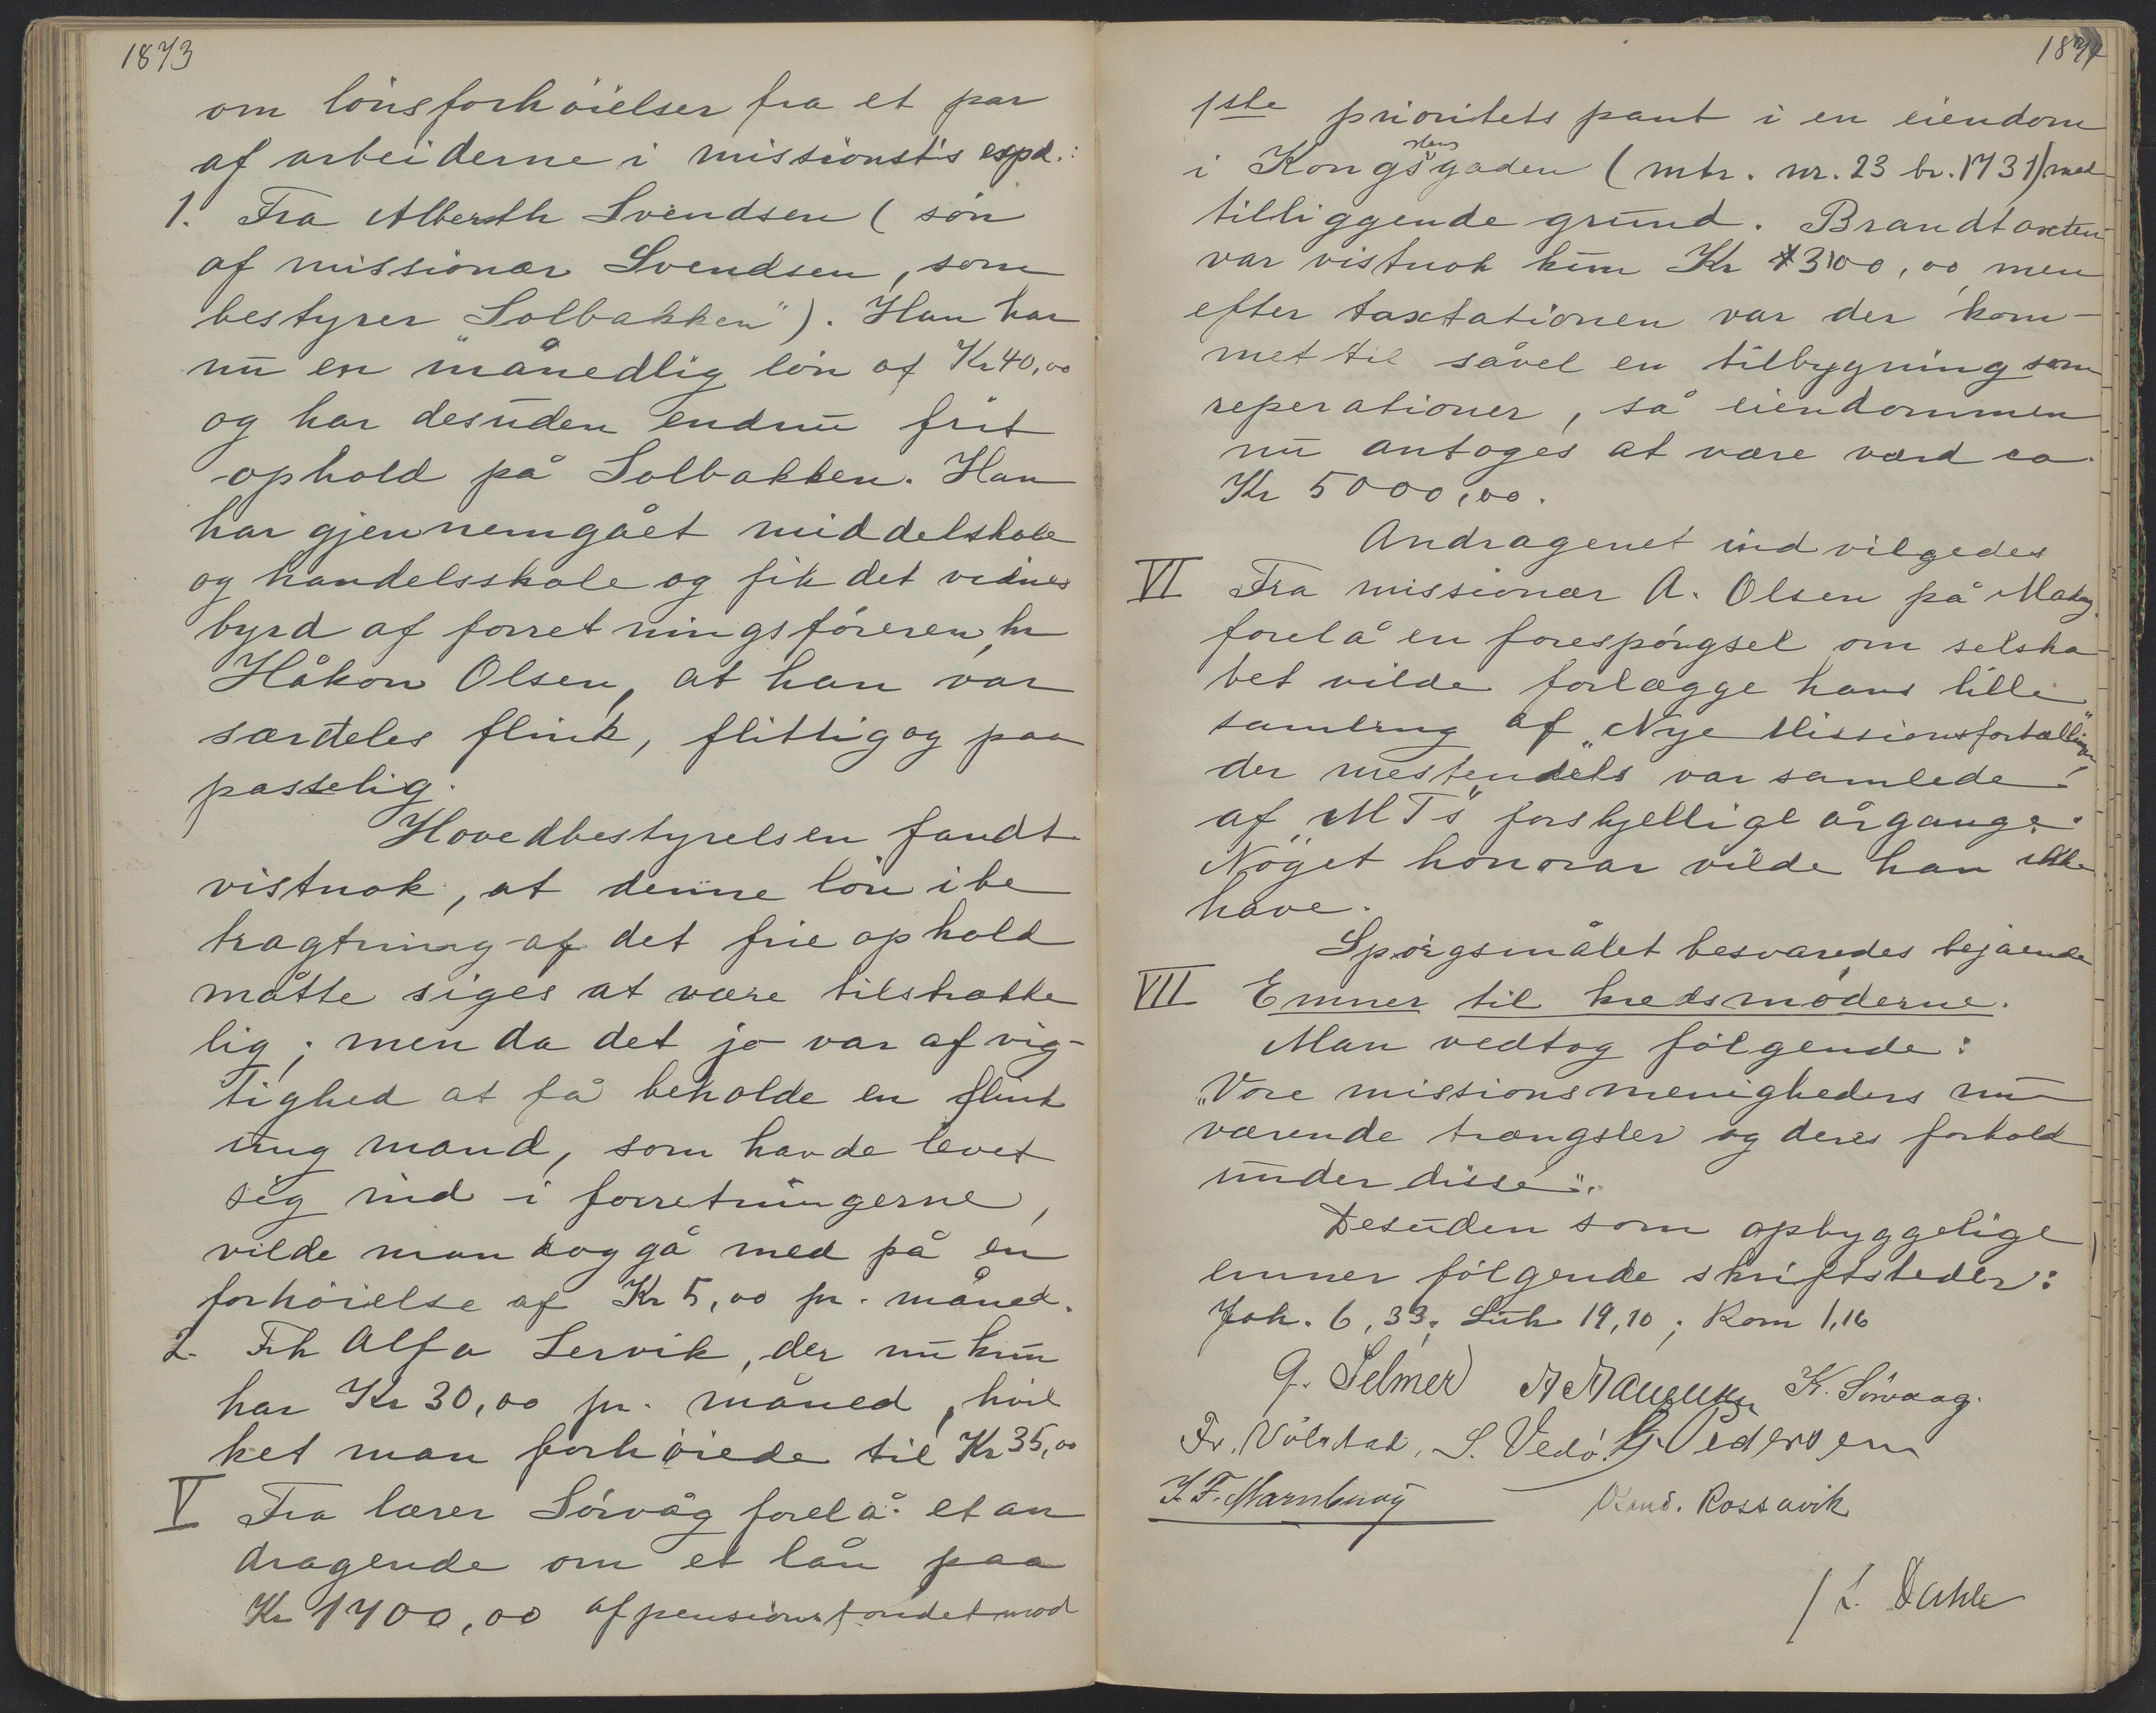 1873
om lönsforhöielser fra et par
af arbeiderne i missionst's espd.:
1. Fra Alberth Svendsen (sön
af missionær Svendsen, som
bestyrer „Solbakken"). Han har
nu en månedlig lön af Kr 40,00
og har desuden endnu frit
ophold på Solbakken. Han
har gjennemgået middelskole
og handelsskole og fik det vidnes
byrd af forretningsföreren, hr
Håkon Olsen, at han var
særdeles flink, flittig og paa
passelig.
Hovedbestyrelsen fandt
vistnok, at denne lön i be
tragtning af det frie ophold
måtte siges at være tilstrække
lig; men da det jo var af vig-
tighed at få beholde en flink
ung mand, som havde levet
sig ind i forretningerne,
vilde man dog gå med på en
forhöielse af Kr 5,00 pr. måned.
2. Frk Alfa Servik, der nu kun
har Kr 30,00 pr. måned, hvil
ket man forhöiede til Kr 35,00
V Fra lærer Sörvåg forelå et an
dragende om et lån paa
Kr 1700,00 af pensionsfondet mod
1874
1ste prioritets pant i en eiendom
i Kongsgaden (mtr. nr. 23 br. 1731) med
tilliggende grund. Brandtaxten
var vistnok kun Kr 3100,00, men
efter taxtationen var der kom-
met til såvel en tilbygning som
reperationer, så eiendommen
nu antoges at være værd ca.
Kr 5000,00.
Andragenet indvilgedes
VI Fra missionær A. Olsen på Madag.
forelå en forespörgsel om selska
bet vilde forlægge hans lille
samling af „Nye Missionsfortællinger",
der mestendels var samlede
af „MT's" forskjellige årgange.
Noget honorar vilde han ikke
have.
Spörgsmålet besvaredes bejaende
VII Emner til kredsmöderne.
Man vedtog fölgende:
„Vore missionsmenigheders nu
værende trængsler og deres forhold
under disse".
Desuden som opbyggelige
emner fölgende skriftsteder:
Joh. 6,33; Luk 19,10; Rom 1,16
G. Selmer K. Sörvaag.
Fr. Völstad, S. Vedö. G. Pedersen
Rossavik
L. Dahle